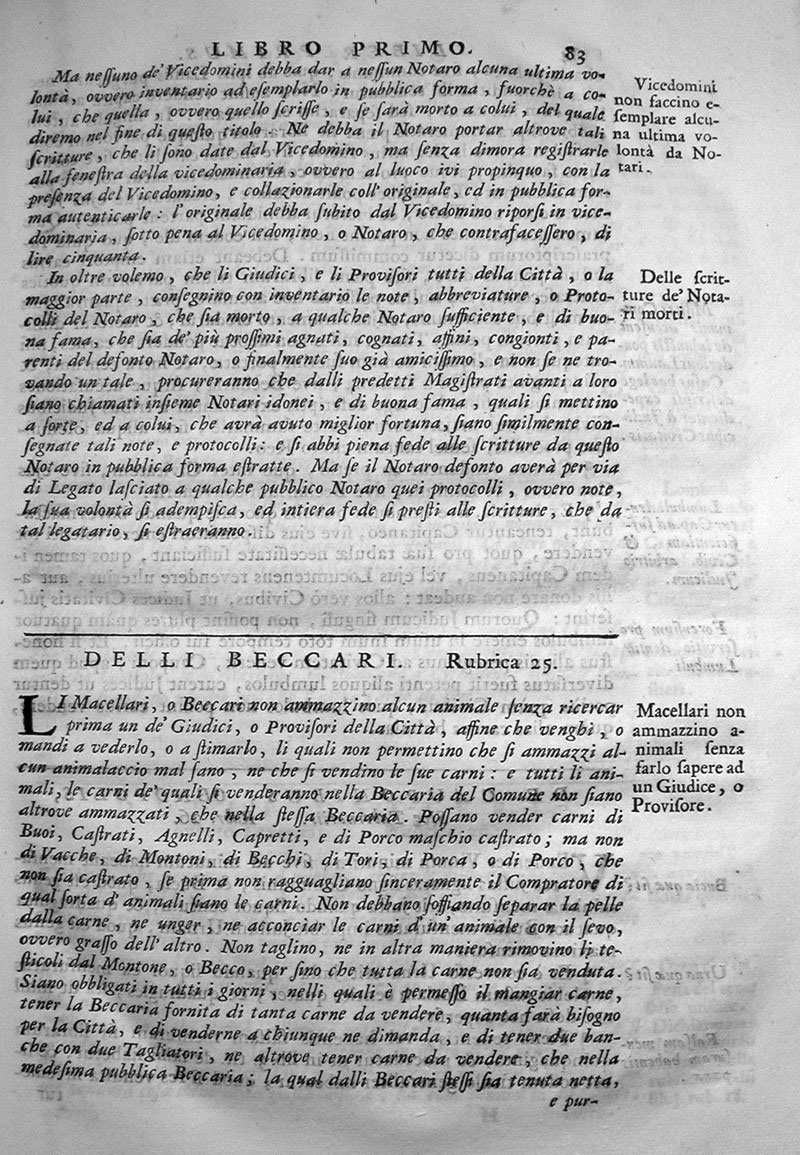 LIBRO PRIMO. 83
Ma neſſuno de' Vicedomini debba dar a neſſun Notaro alcuna ultima vo-
lontà, ovvero inventario ad eſemplarlo in pubblica forma, fuorchè a co-
lui, che quella, ovvero quello ſcriſſe, e ſe ſarà morto a colui, del quale
diremo nel fine di queſto titolo. Ne debba il Notaro portar altrove tali
ſcritture, che li ſono date dal Vicedomino, ma ſenza dimora regiſtrarle
alla feneſtra della vicedominaria, ovvero al luoco ivi propinquo, con la
preſenza del Vicedomino, e collazionarle coll' originale, ed in pubblica for-
ma autenticarle: l'originale debba ſubito dal Vicedomino riporſi in vice-
dominaria, ſotto pena al Vicedomino, o Notaro, che contrafaceſſero, di
lire cinquanta.
Vicedomini
non faccino e-
ſemplare alcu-
na ultima vo-
lontà da No-
tari.
In oltre volemo, che li Giudici, e li Proviſori tutti della Città, o la
maggior parte, conſegnino con inventario le note, abbreviature, o Proto-
colli del Notaro, che ſia morto, a qualche Notaro ſufficiente, e di buo-
na fama, che ſia de' più proſſimi agnati, cognati, affini, congionti, e pa-
renti del defonto Notaro, o finalmente ſuo già amiciſſimo, e non ſe ne tro-
vando un tale, procureranno che dalli predetti Magiſtrati avanti a loro
ſiano chiamati inſieme Notari idonei, e di buona fama, quali ſi mettino
a ſorte, ed a colui, che avrà avuto miglior fortuna, ſiano ſimilmente con-
ſegnate tali note, e protocolli: e ſi abbi piena fede alle ſcritture da queſto
Notaro in pubblica forma eſtratte. Ma ſe il Notaro defonto averà per via
di Legato laſciato a qualche pubblico Notaro quei protocolli, ovvero note,
la ſua volontà ſi adempiſca, ed intiera fede ſi preſti alle ſcritture, che da
tal legatario, ſi eſtraeranno.
Delle ſcrit-
ture de' Nota-
ri morti.
DELLI BECCARI. Rubrica 25.
LI Macellari, o Beccari non ammazzino alcun animale ſenza ricercar
prima un de' Giudici, o Proviſori della Città, affine che venghi, o
mandi a vederlo, o a ſtimarlo, li quali non permettino che ſi ammazzi al-
cun animalaccio mal ſano, ne che ſi vendino le ſue carni: e tutti li ani-
mali, le carni de' quali ſi venderanno nella Beccaria del Comune non ſiano
altrove ammazzati, che nella ſteſſa Beccaria. Poſſano vender carni di
Buoi, Caſtrati, Agnelli, Capretti, e di Porco maſchio caſtrato; ma non
di Vacche, di Montoni, di Becchi, di Tori, di Porca, o di Porco, che
non ſia caſtrato, ſe prima non ragguagliano ſinceramente il Compratore di
qual ſorta d'animali ſiano le carni. Non debbano ſoffiando ſeparar la pelle
dalla carne, ne unger, ne acconciar le carni d'un' animale con il ſevo,
ovvero graſſo dell' altro. Non taglino, ne in altra maniera rimovino li te-
ſticoli dal Montone, o Becco, per ſino che tutta la carne non ſia venduta.
Siano obbligati in tutti i giorni, nelli quali è permeſſo il mangiar carne,
tener la Beccaria fornita di tanta carne da vendere, quanta farà biſogno
per la Città, e di venderne a chiunque ne dimanda, e di tener due ban-
che con due Tagliatori, ne altrove tener carne da vendere, che nella
medeſima pubblica Beccaria; la qual dalli Beccari ſteſſi ſia tenuta netta,
e pur-
Macellari non
ammazzino a-
nimali ſenza
farlo ſapere ad
un Giudice, o
Proviſore.